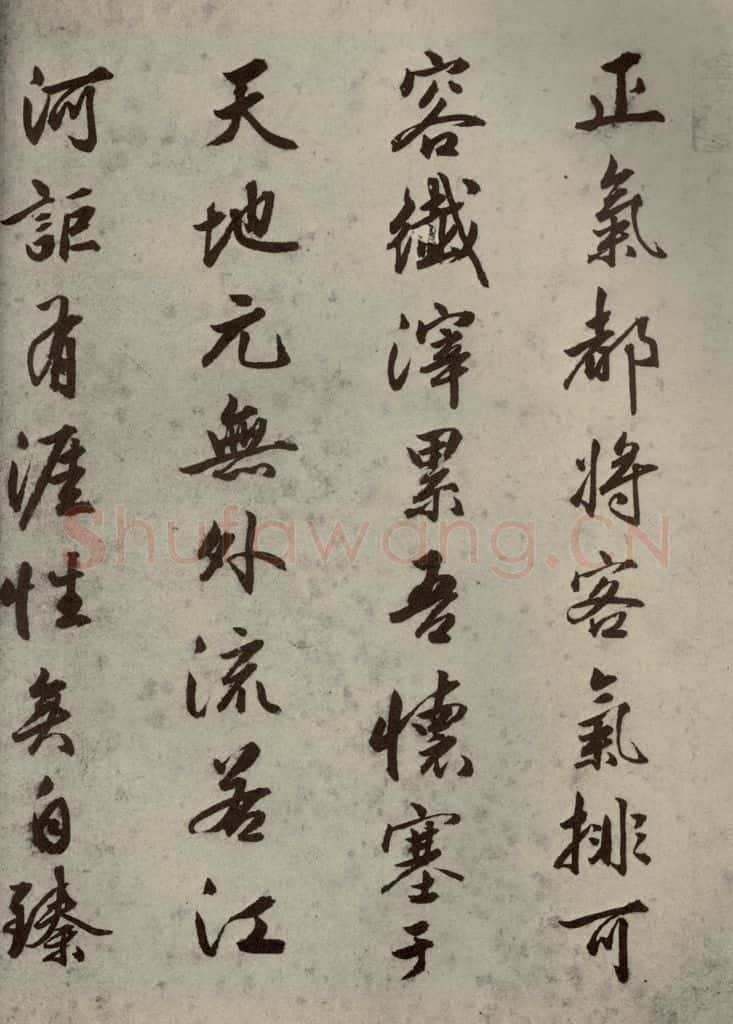 正氣都將客氣排可
容纖滓累吾懷塞于
天地元無外流若江
河詎有涯性矣自臻
Shufawang.CN